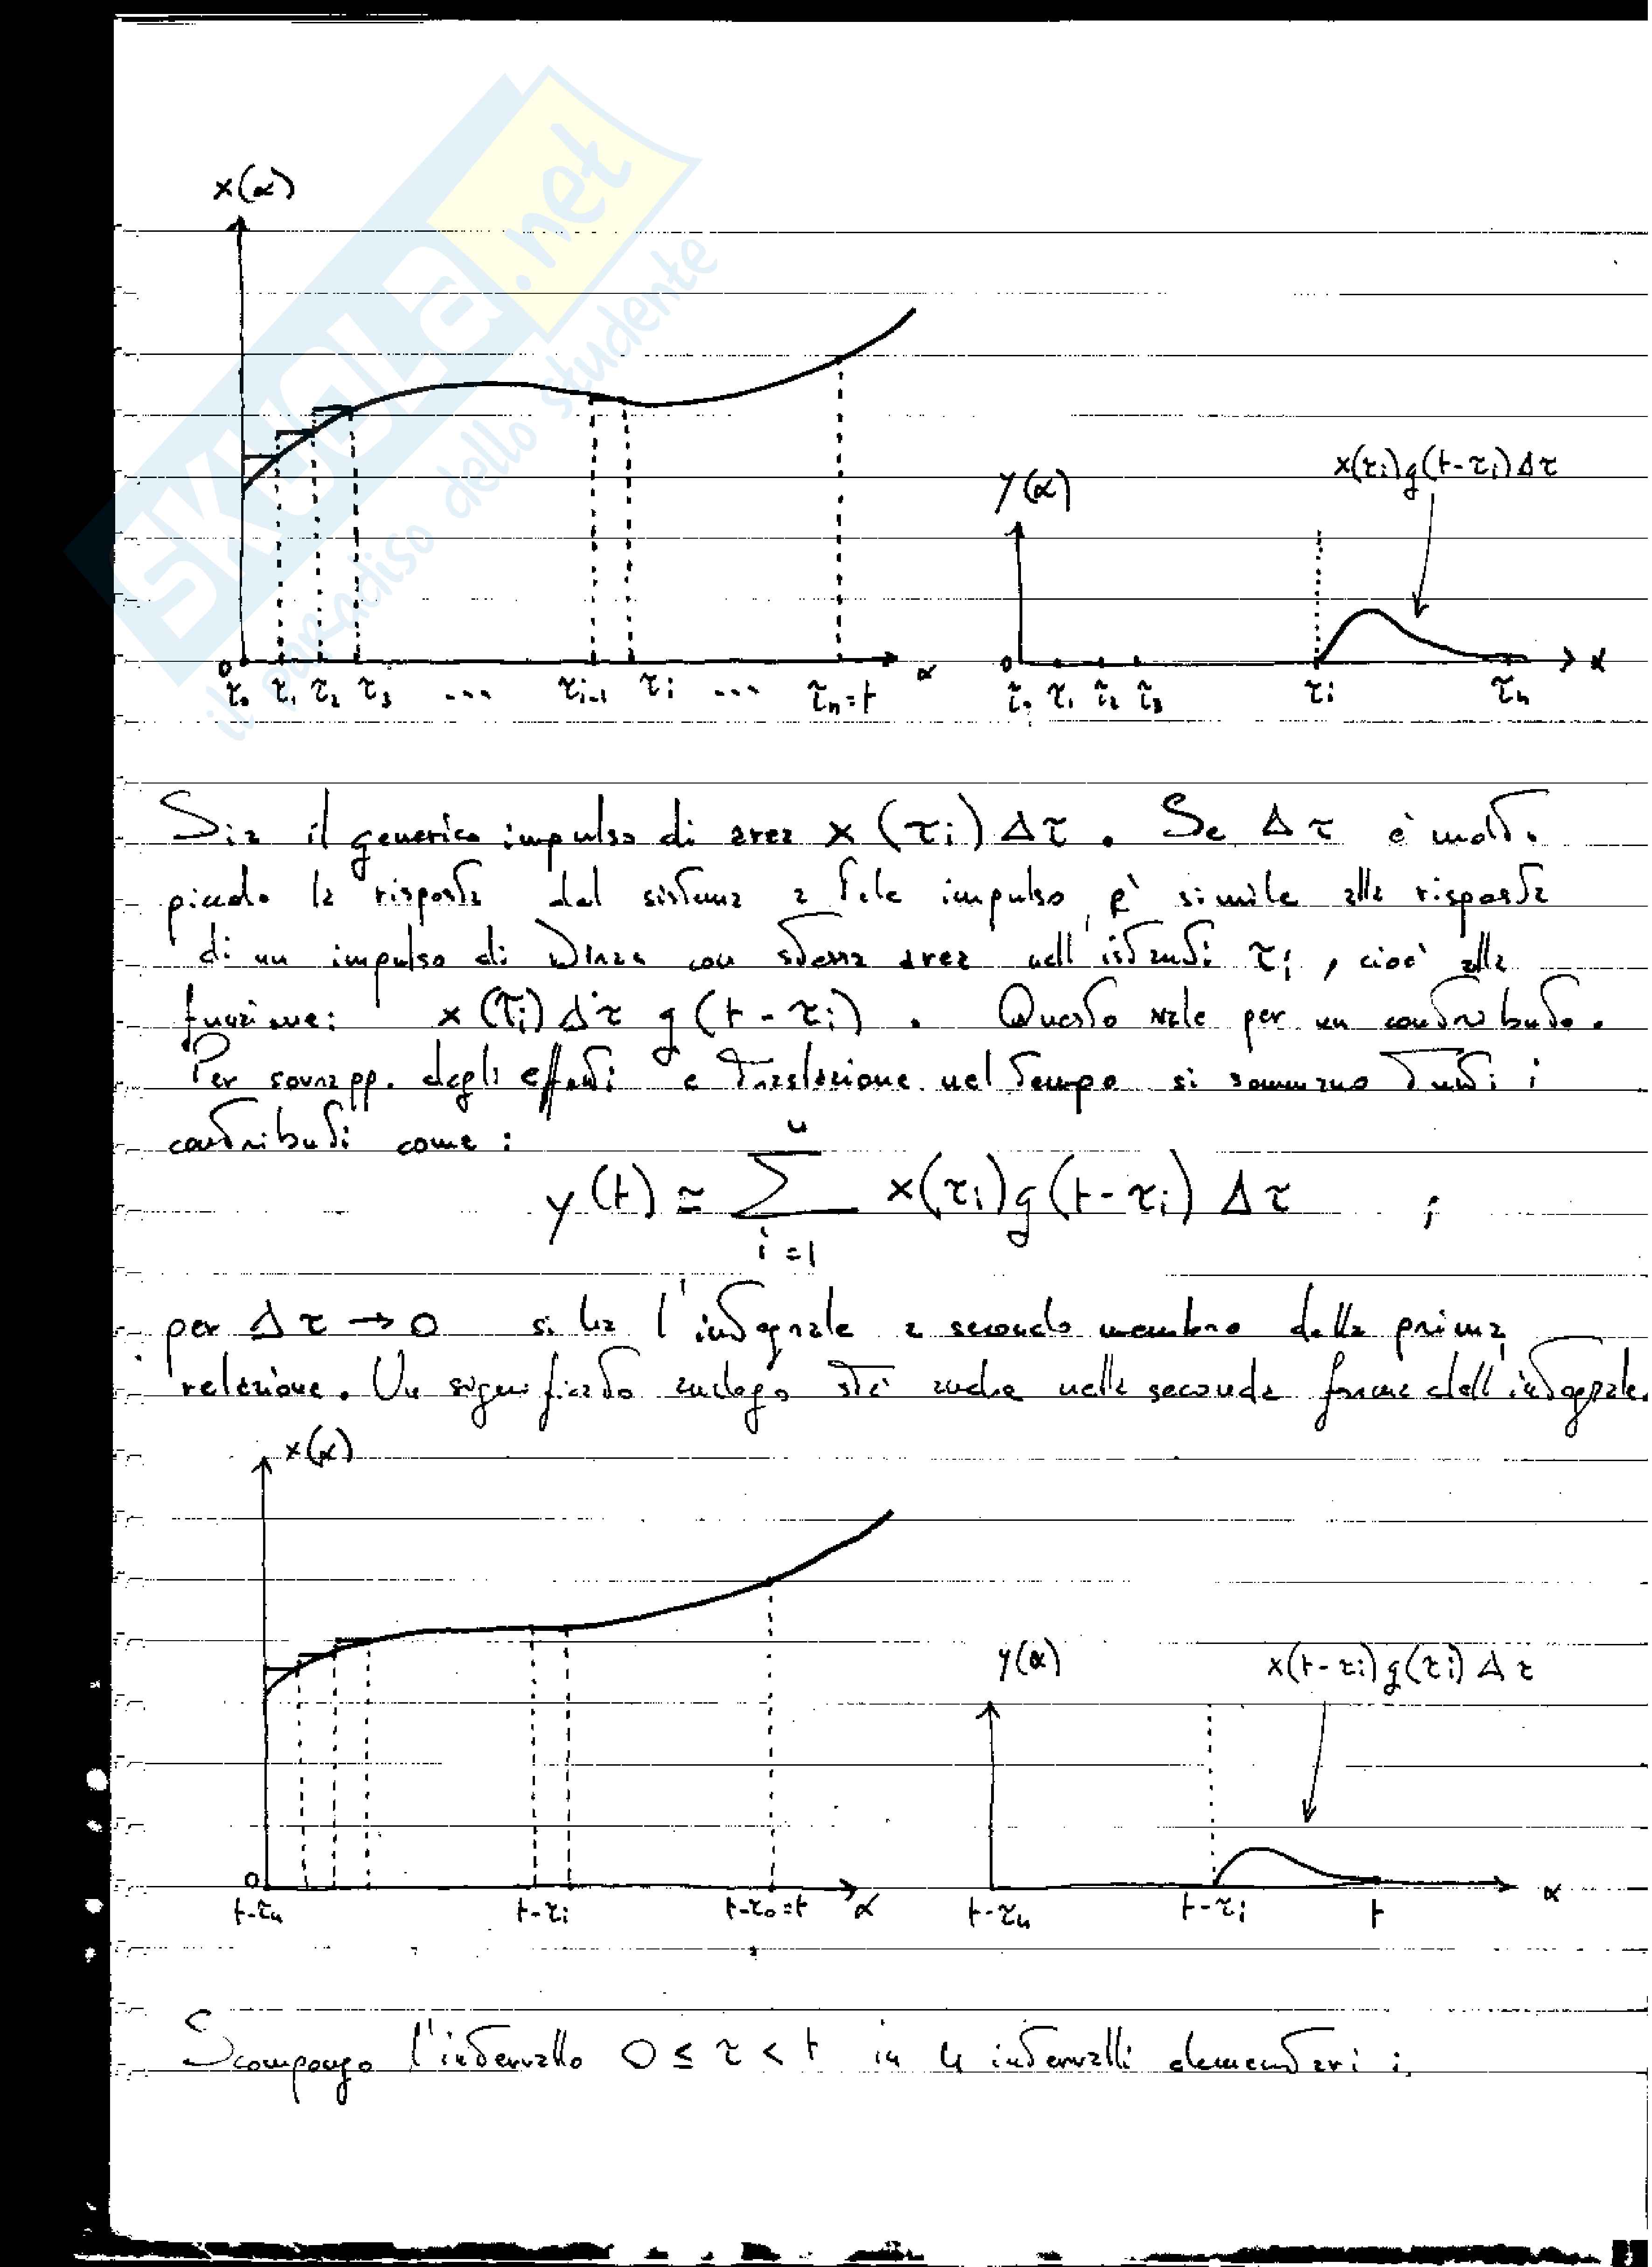 SKUOLA.net
il paradiso dello studente
x(α)
0 τ₀ τ₁ τ₂ τ₃ ... τᵢ₋₁ τᵢ ... τₙ=t α
y(α)
x(τᵢ)g(t-τᵢ)Δτ
0 τ₀ τ₁ τ₂ τ₃ τᵢ τₙ α
Sia il generico impulso di area x(τᵢ)Δτ. Se Δτ è molto
piccolo la risposta del sistema a tale impulso è simile alla risposta
di un impulso di Dirac con stessa area nell'istante τᵢ, cioè alla
funzione: x(τᵢ)Δτ g(t-τᵢ). Questo vale per un contributo.
Per sovrapp. degli effetti e traslazione nel tempo si sommano tutti i
contributi come:
y(t) ≃ ∑ᵢ₌₁ⁿ x(τᵢ)g(t-τᵢ) Δτ ;
per Δτ → 0 si ha l'integrale a secondo membro della prima
relazione. Un significato analogo sta anche nella seconda forma dell'integrale.
x(α)
0 t-τₙ t-τᵢ t-τ₀=t α
y(α)
x(t-τᵢ)g(τᵢ)Δτ
t-τₙ t-τᵢ t α
Scompongo l'intervallo 0 ≤ τ < t in n intervalli elementari :